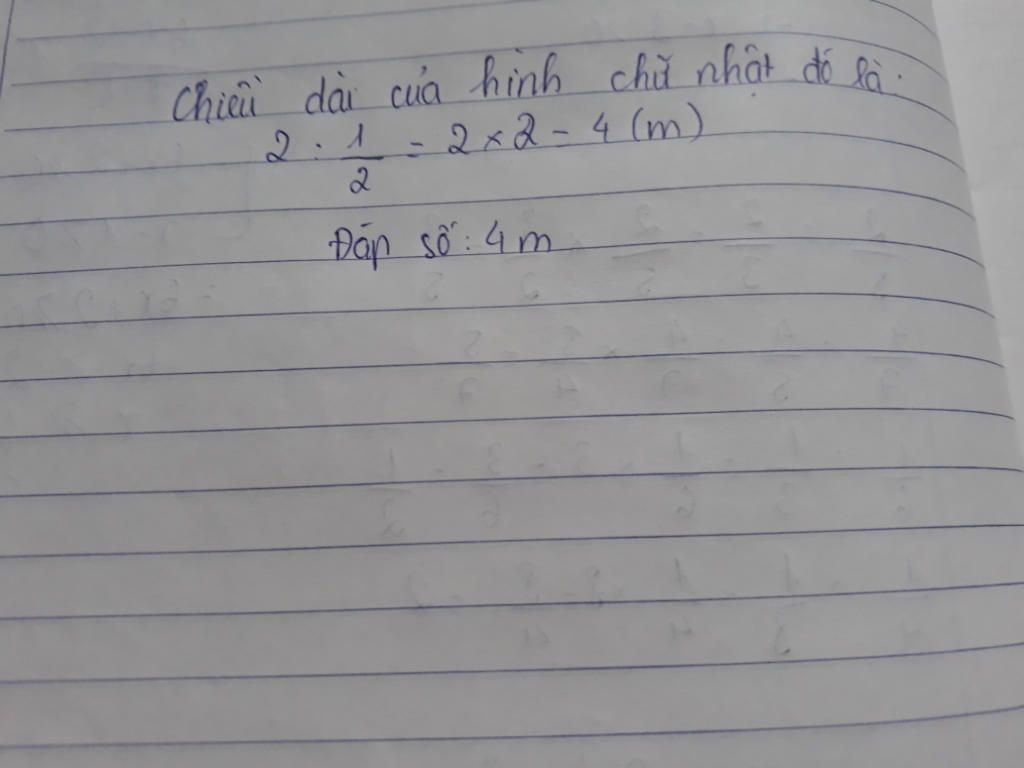 Chiều dài của hình chữ nhật đó là:
2 : 1/2 = 2 × 2 = 4 (m)
Đáp số: 4m